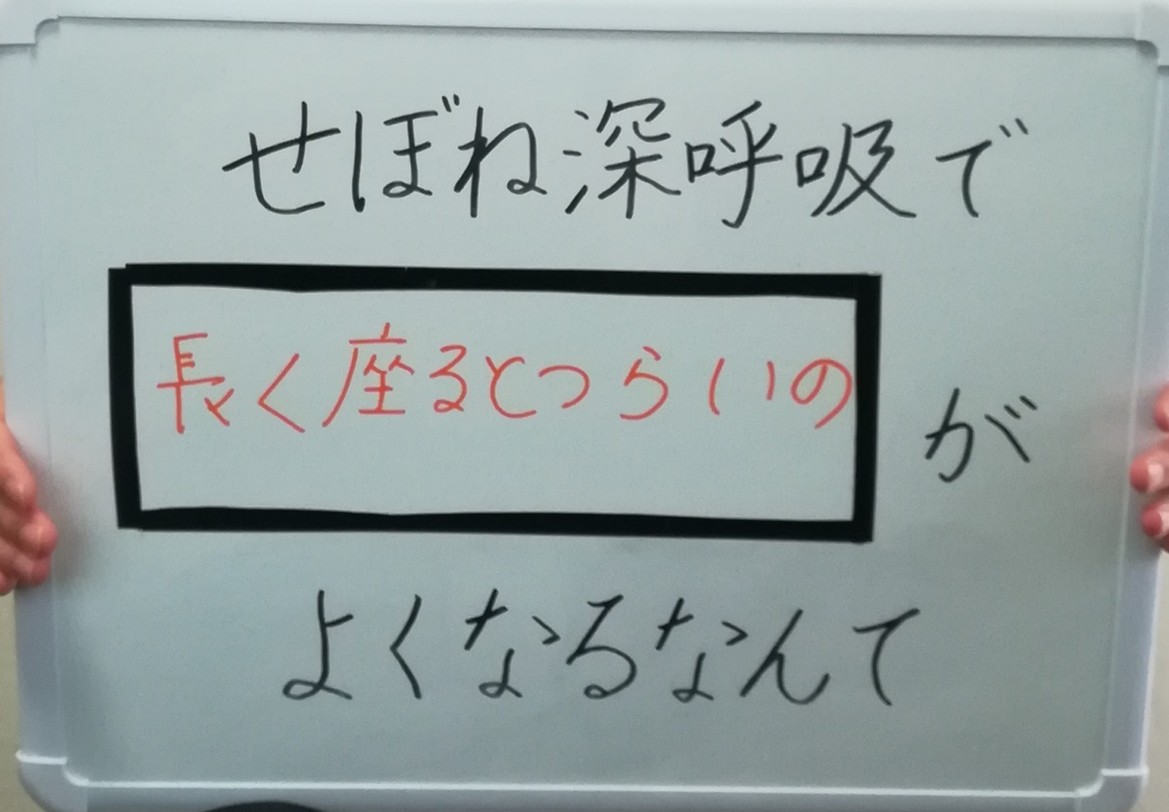 せぼね深呼吸で
長く座るとつらいの
が
よくなるなんて